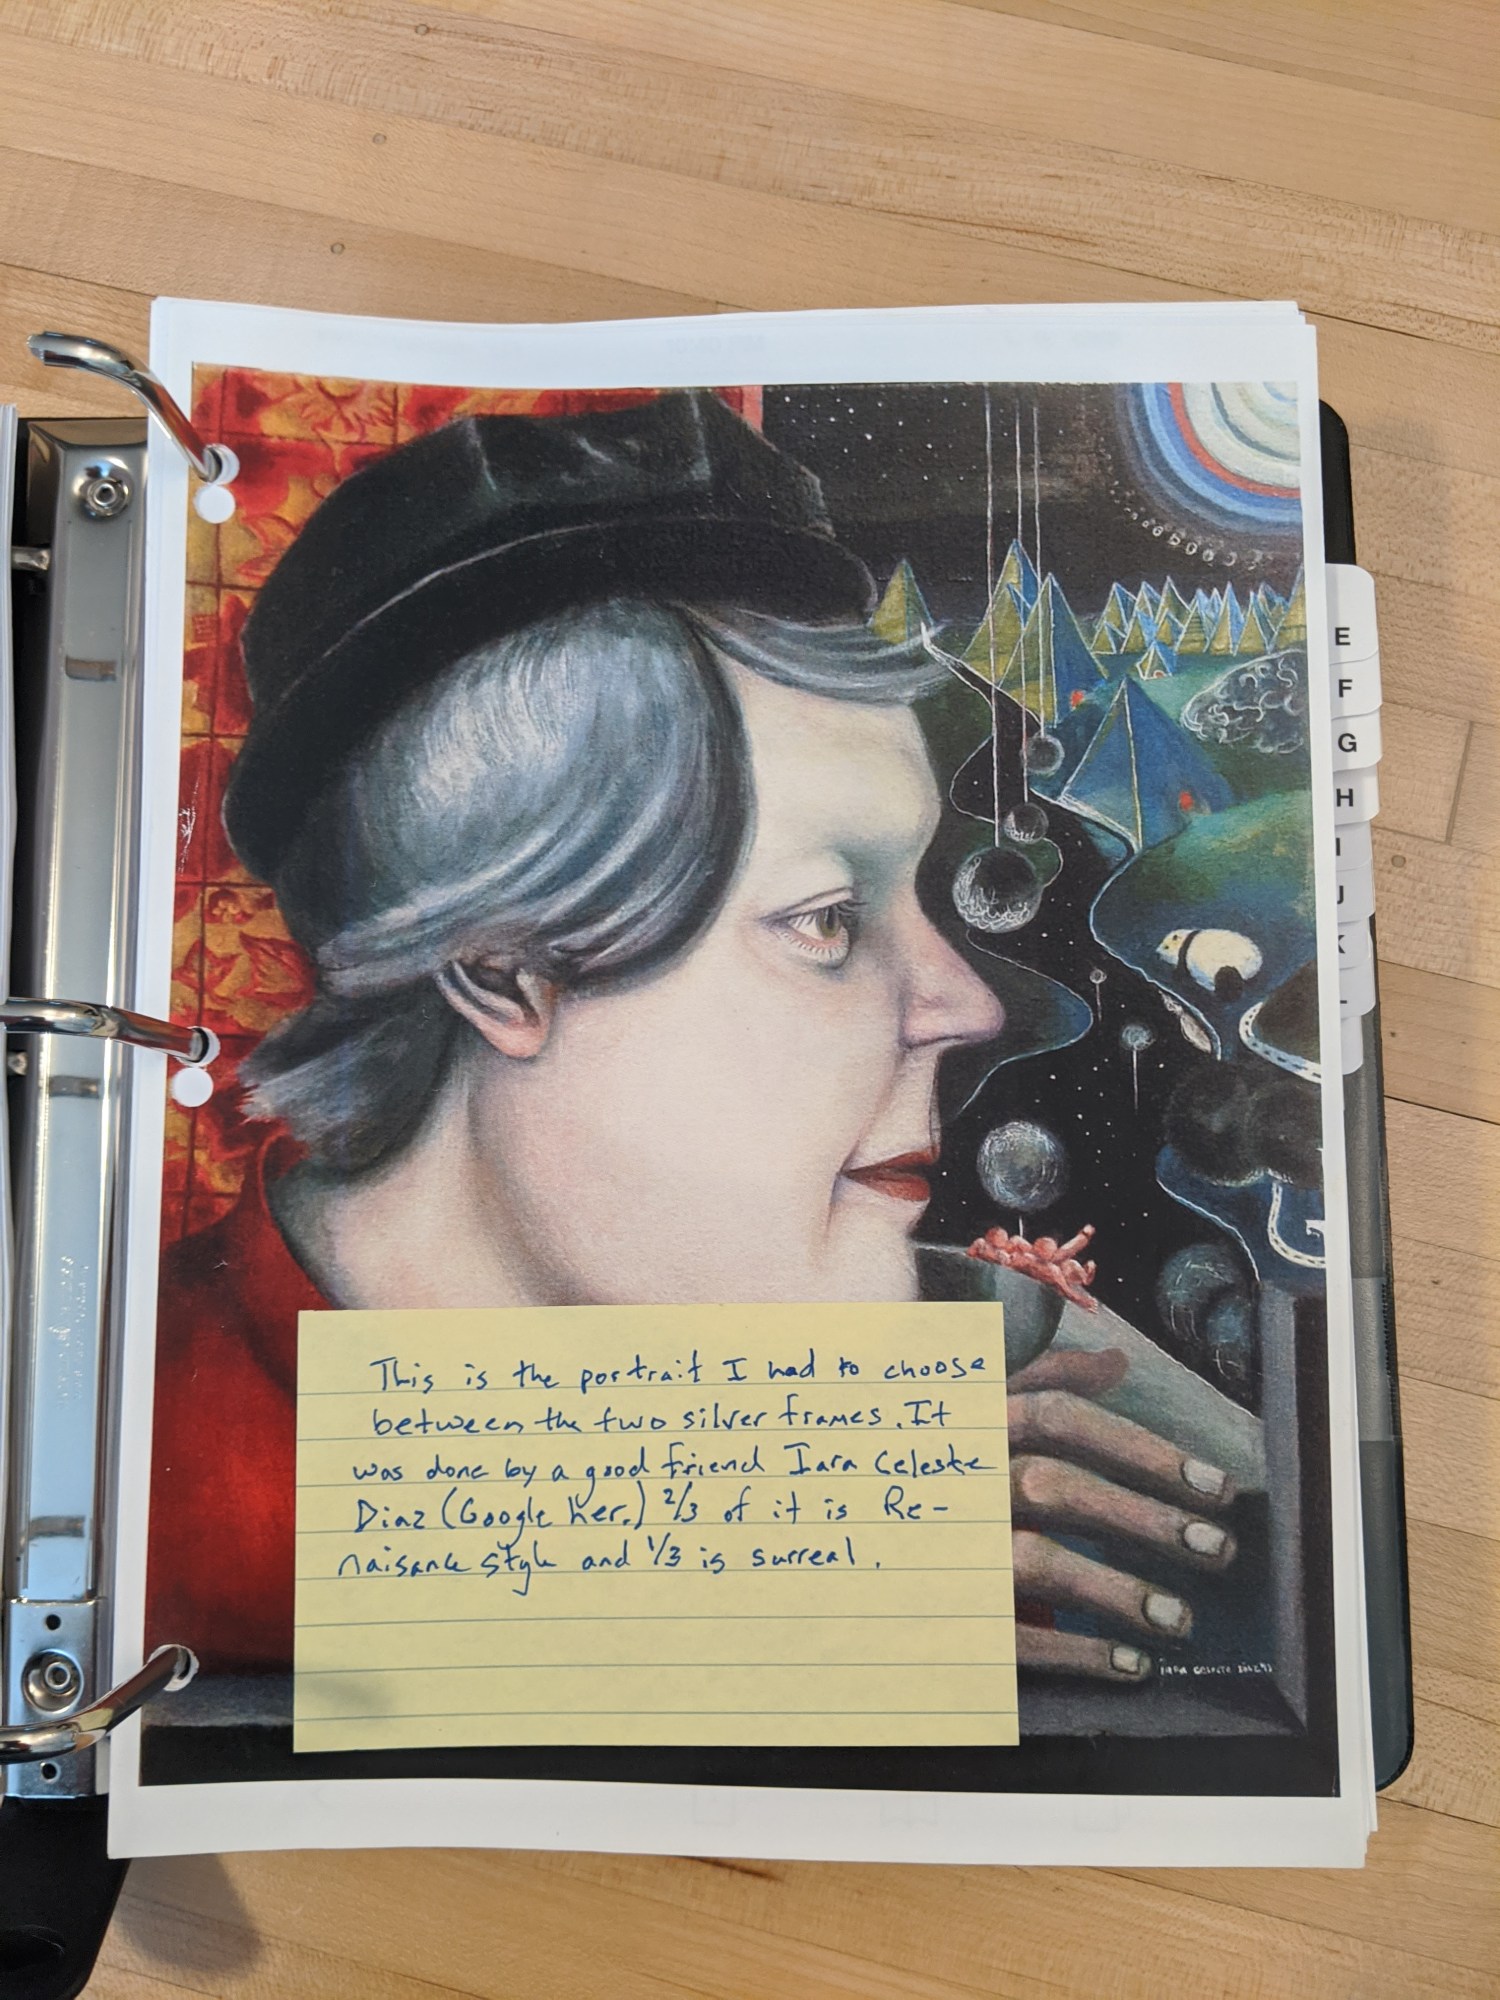 E
F
G
H
I
J
K
L
This is the portrait I had to choose
between the two silver frames. It
was done by a good friend Iara Celeste
Diaz (Google her.) 2/3 of it is Re-
naisance style and 1/3 is surreal.
iara celeste